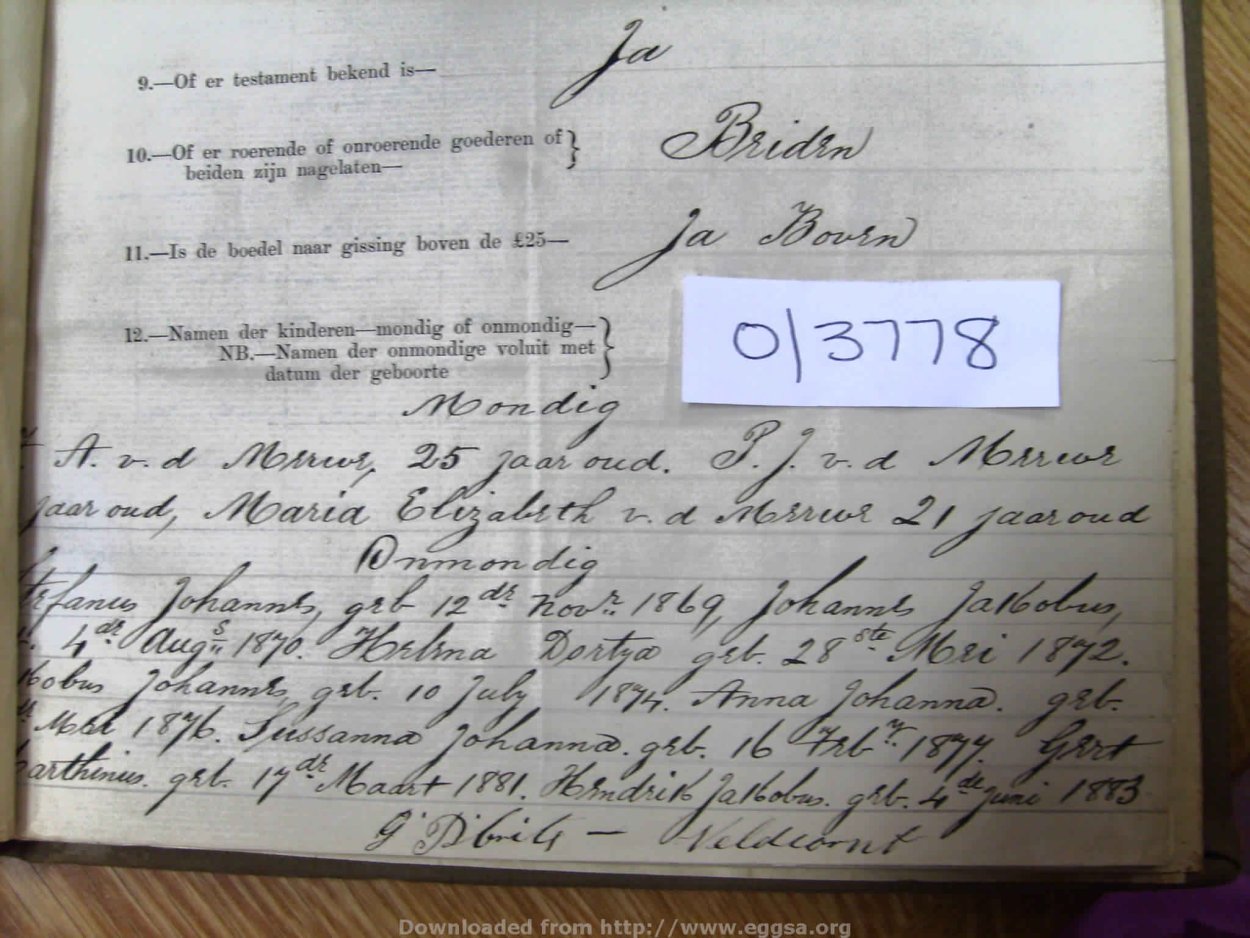 9.—Of er testament bekend is— Ja
10.—Of er roerende of onroerende goederen of } Beiden
beiden zijn nagelaten—
11.—Is de boedel naar gissing boven de £25— Ja Boven
12.—Namen der kinderen—mondig of onmondig—
NB.—Namen der onmondige voluit met
datum der geboorte
0/3778
Mondig
A. v. d Merwe, 25 jaar oud. P. J. v. d Merwe
jaar oud, Maria Elizabeth v. d Merwe 21 jaar oud
Onmondig
tefanus Johannes, geb 12de Novr 1869, Johannes Jakobus,
4de Augs 1870. Helena Dortya geb. 28ste Mei 1872.
kobus Johannes, geb. 10 July 1874. Anna Johanna. geb.
Mei 1876. Sussanna Johanna. geb. 16 Feby 1877. Gert
arthinus. geb. 17de Maart 1881. Hendrik Jakobus. geb. 4de Juni 1883
— Veldcornet
Downloaded from http://www.eggsa.org